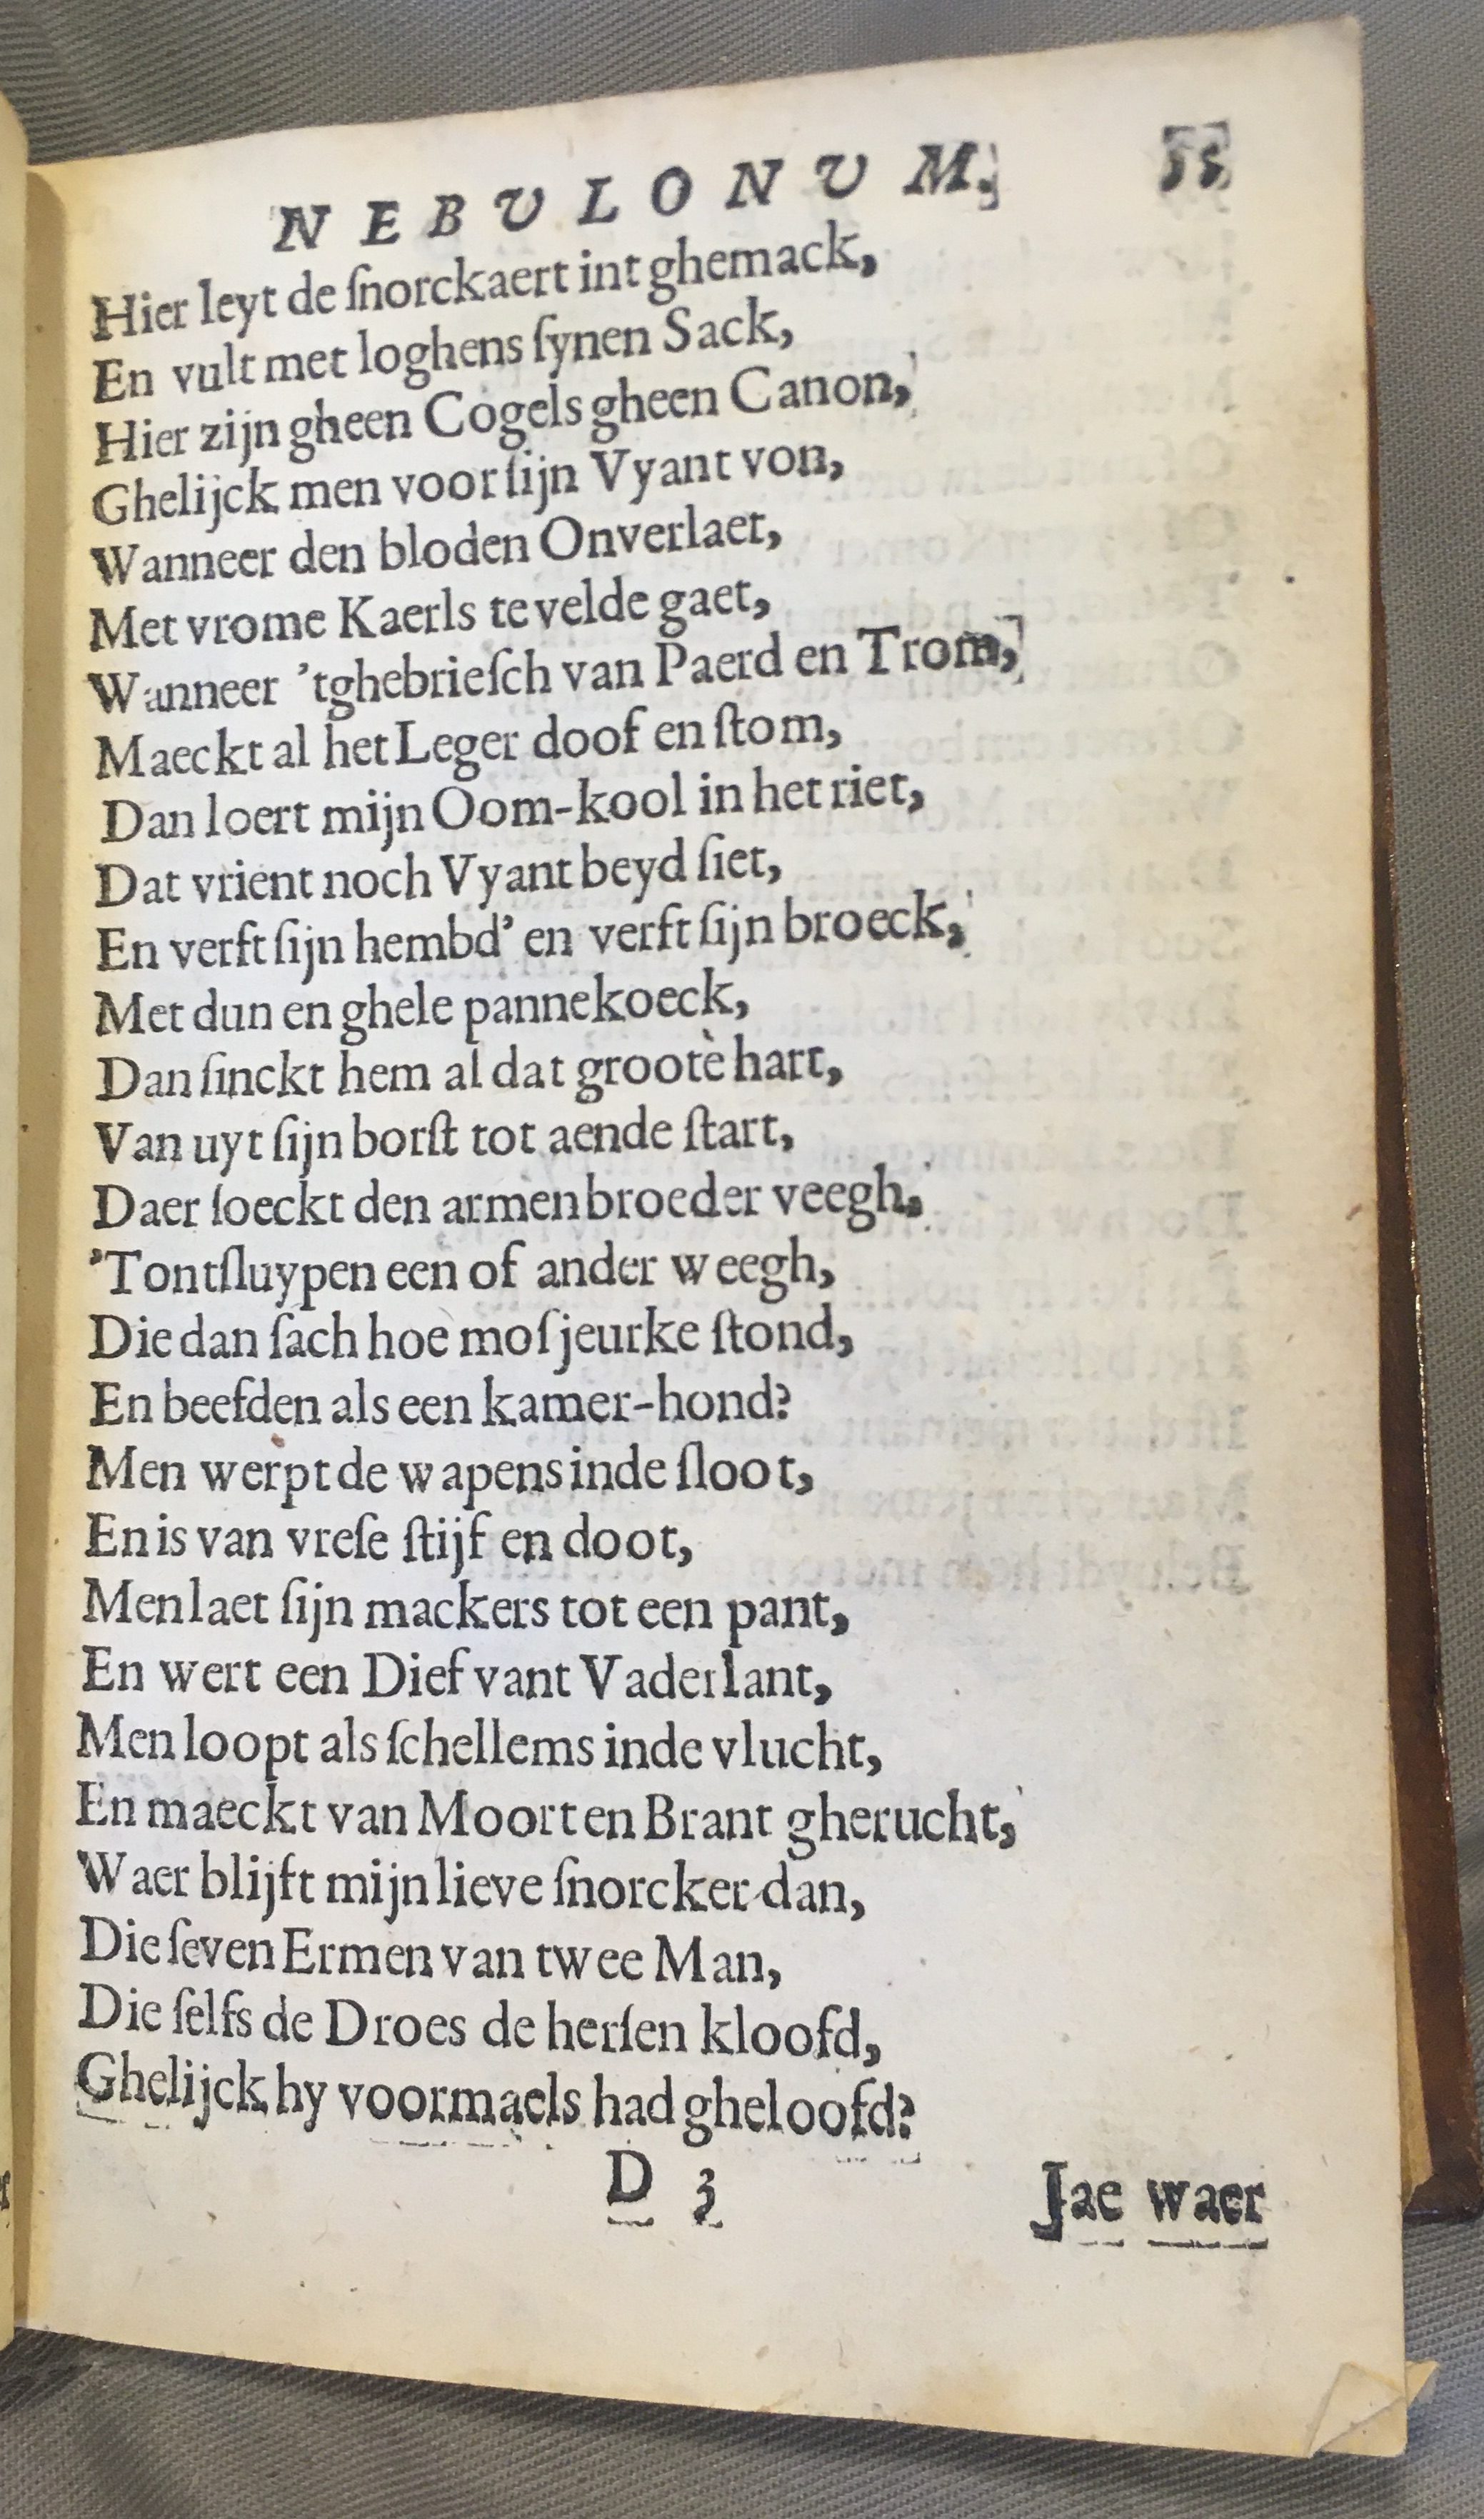 NEBVLONVM. 55
Hier leyt de ſnorckaert int ghemack,
En vult met loghens ſynen Sack,
Hier zijn gheen Cogels gheen Canon,
Ghelijck men voor ſijn Vyant von,
Wanneer den bloden Onverlaet,
Met vrome Kaerls te velde gaet,
Wanneer 'tghebrieſch van Paerd en Trom,
Maeckt al het Leger doof en ſtom,
Dan loert mijn Oom-kool in het riet,
Dat vrient noch Vyant beyd ſiet,
En verft ſijn hembd' en verft ſijn broeck,
Met dun en ghele pannekoeck,
Dan ſinckt hem al dat grootè hart,
Van uyt ſijn borſt tot aende ſtart,
Daer ſoeckt den armen broeder veegh,
'Tontſluypen een of ander weegh,
Die dan ſach hoe moſjeurke ſtond,
En beefden als een kamer-hond?
Men werpt de wapens inde ſloot,
En is van vreſe ſtijf en doot,
Men laet ſijn mackers tot een pant,
En wert een Dief vant Vaderlant,
Men loopt als ſchellems inde vlucht,
En maeckt van Moort en Brant gherucht,
Waer blijft mijn lieve ſnorcker dan,
Die ſeven Ermen van twee Man,
Die ſelfs de Droes de herſen kloofd,
Ghelijck hy voormaels had gheloofd?
D 3 Jae waer